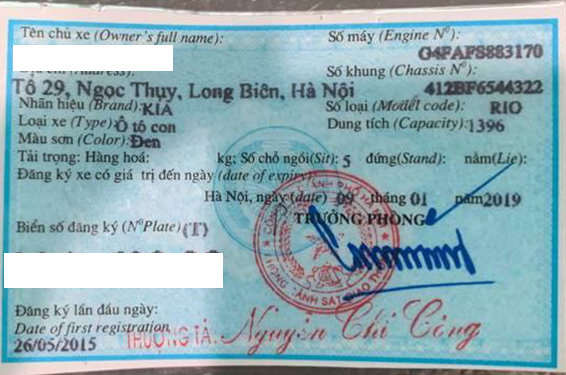 Tên chủ xe (Owner's full name):
Số máy (Engine Nº):
G4FAFS883170
Số khung (Chassis Nº):
Tổ 29, Ngọc Thụy, Long Biên, Hà Nội
412BF6544322
Nhãn hiệu (Brand): KIA
Số loại (Model code): RIO
Loại xe (Type) Ô tô con
Dung tích (Capacity): 1396
Màu sơn (Color): Đen
Tải trọng: Hàng hoá: kg; Số chỗ ngồi(Sit): 5 đứng(Stand): nằm(Lie):
Đăng ký xe có giá trị đến ngày (date of expiry)
Hà Nội, ngày (date) 09 tháng 01 năm 2019
TRƯỞNG PHÒNG
Biển số đăng ký (NºPlate) (T)
Đăng ký lần đầu ngày:
Date of first registration
26/05/2015
THƯỢNG TÁ: Nguyễn Chí Công